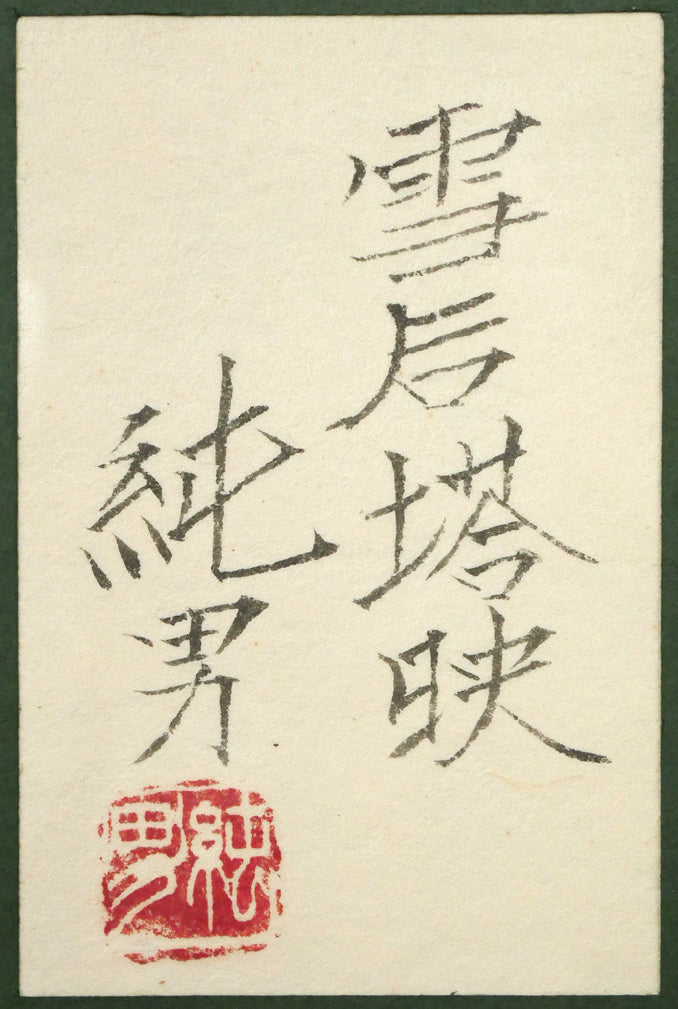 雪后塔映
純男
純男